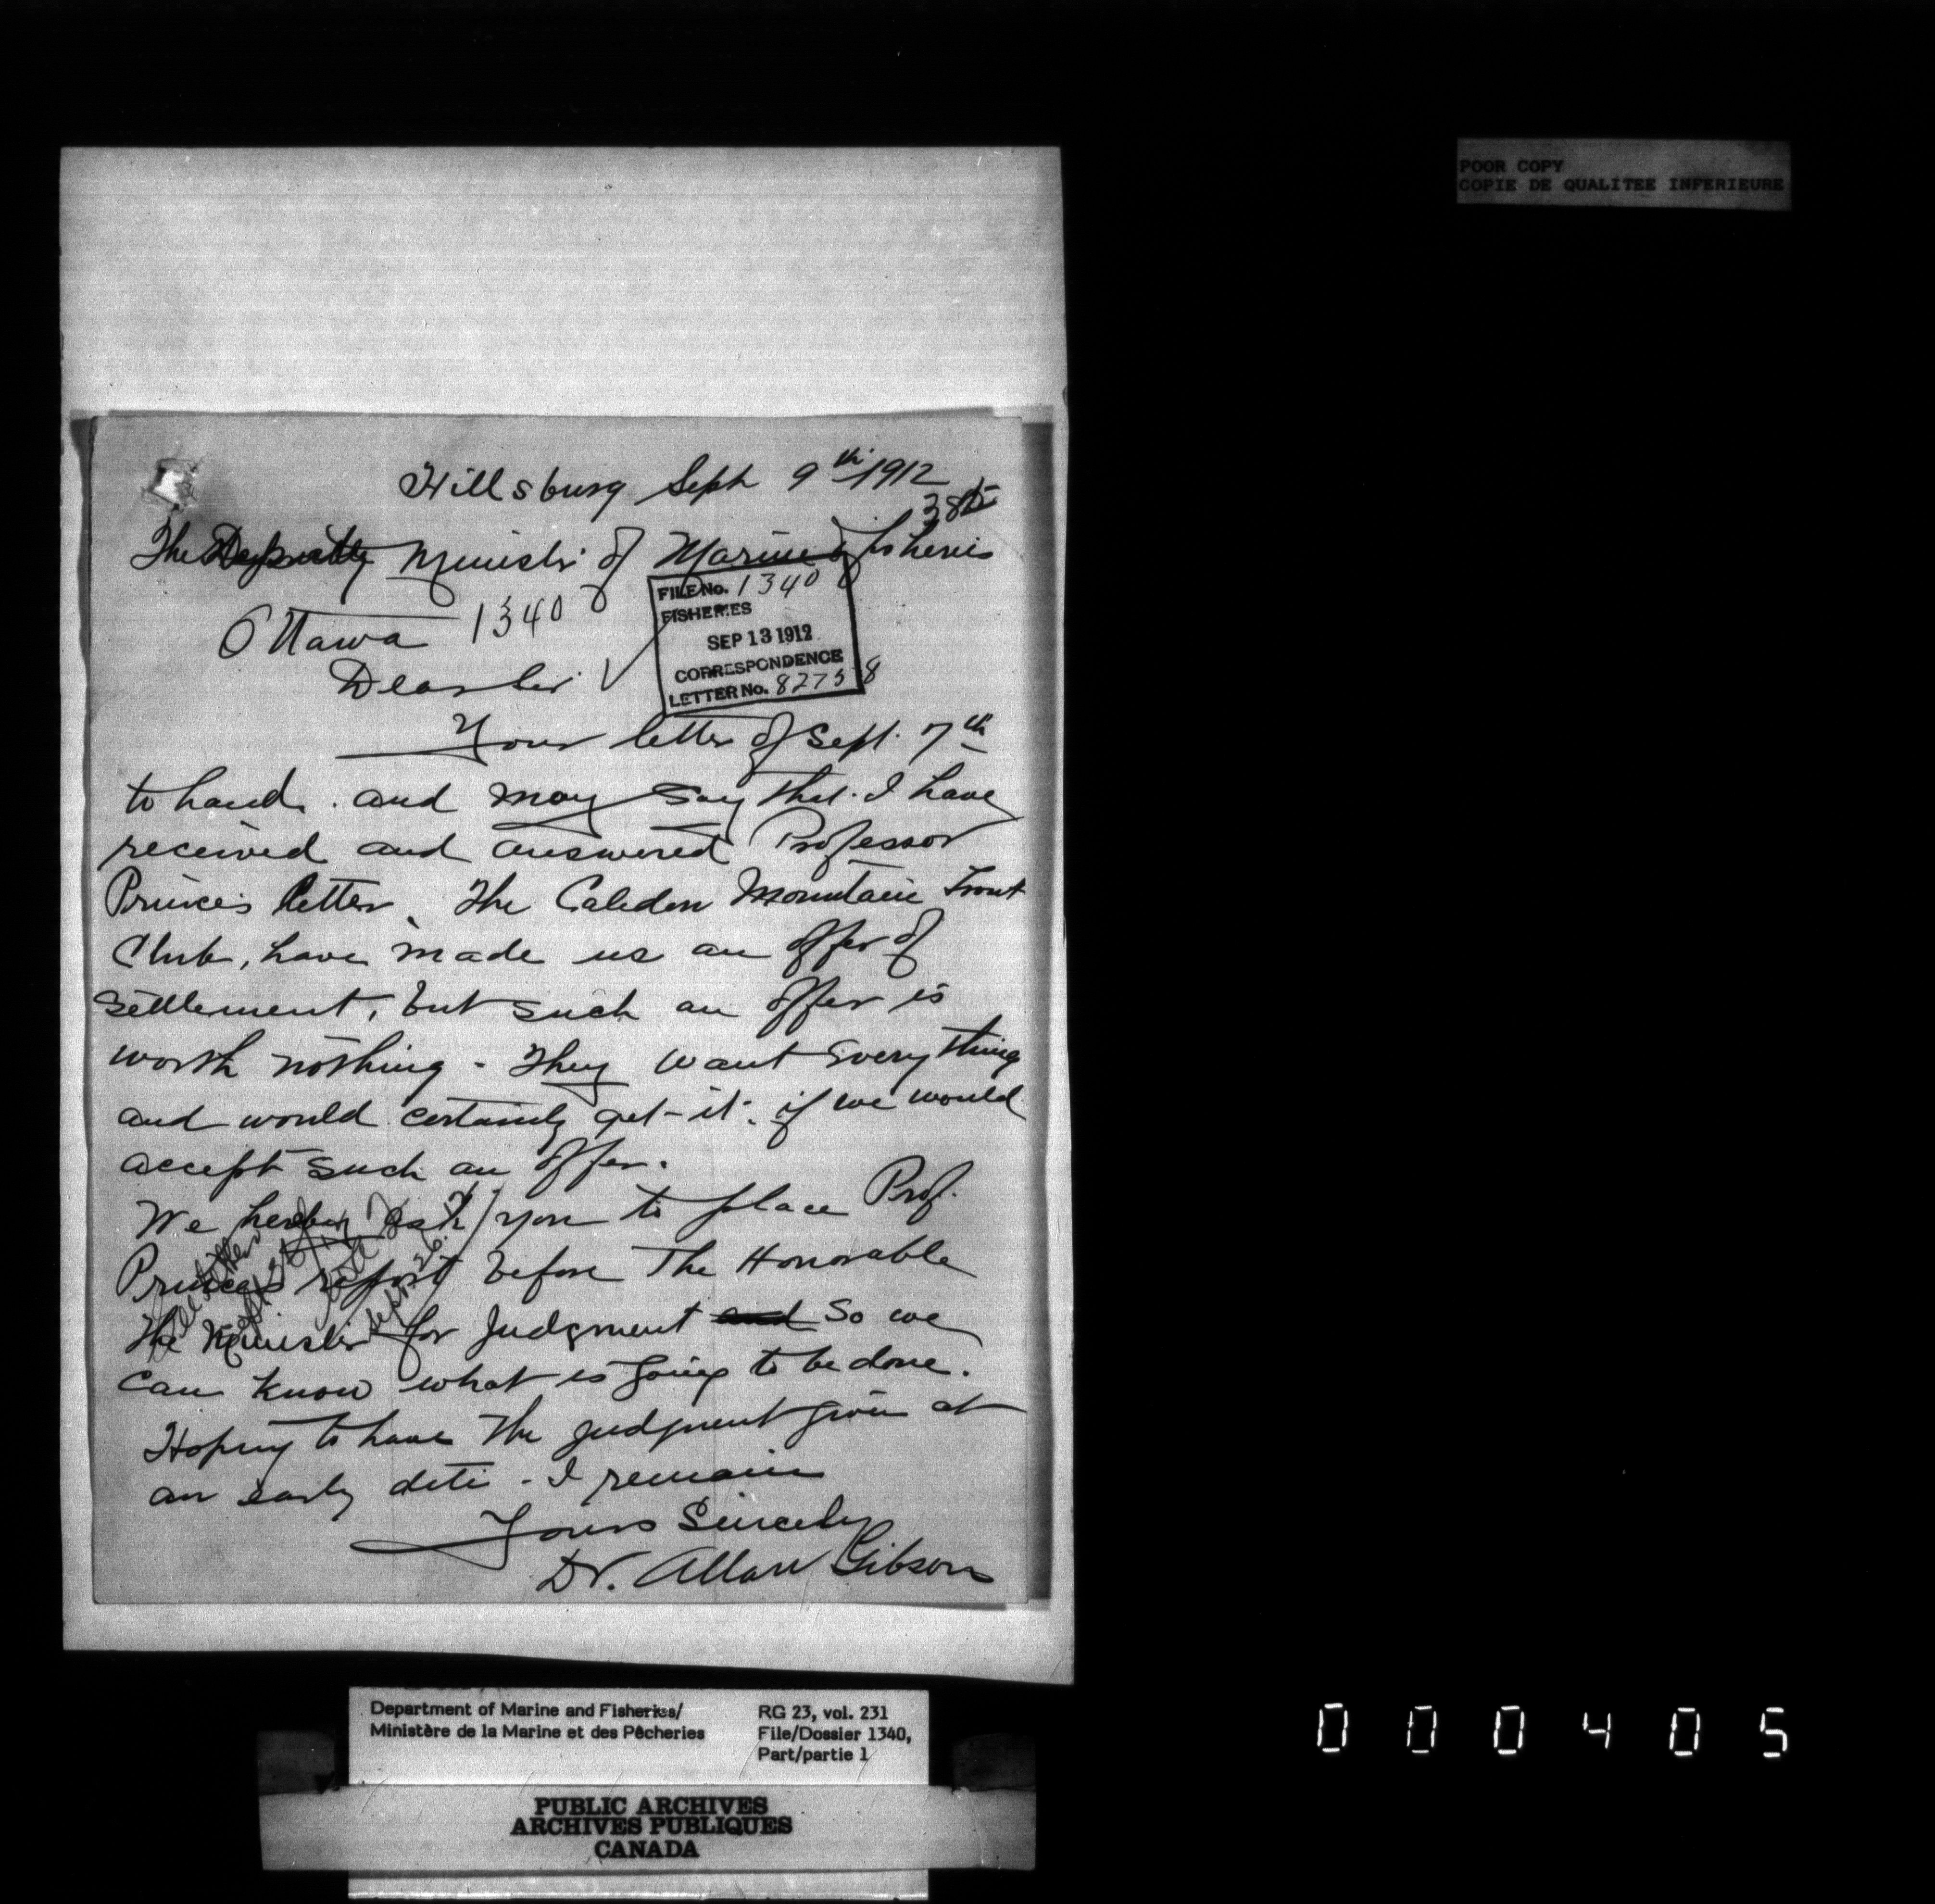 POOR COPY
COPIE DE QUALITEE INFERIEURE
Hillsburg Sept 9th 1912
The Deputy Minister of Marine & Fisheries
Ottawa 1340
FILE No. 1340
FISHERIES
SEP 13 1912
CORRESPONDENCE
LETTER No. 82758
Dear Sir
Your letter of Sept. 7th
to hand. and may say that I have
received and answered Professor
Princes letter. The Caledon Mountain Trout
Club, have made us an offer of
settlement, but such an offer is
worth nothing - They want everything
and would certainly get it. if we would
accept such an offer.
We hereby ask you to place Prof.
Princes report before The Honorable
The Minister for Judgment and So we
can know what is going to be done.
Hoping to have the judgment given at
an early date - I remain
Yours Sincerely
Dr. Allan Gibson
Department of Marine and Fisheries/
Ministère de la Marine et des Pêcheries
RG 23, vol. 231
File/Dossier 1340,
Part/partie 1
PUBLIC ARCHIVES
ARCHIVES PUBLIQUES
CANADA
000405